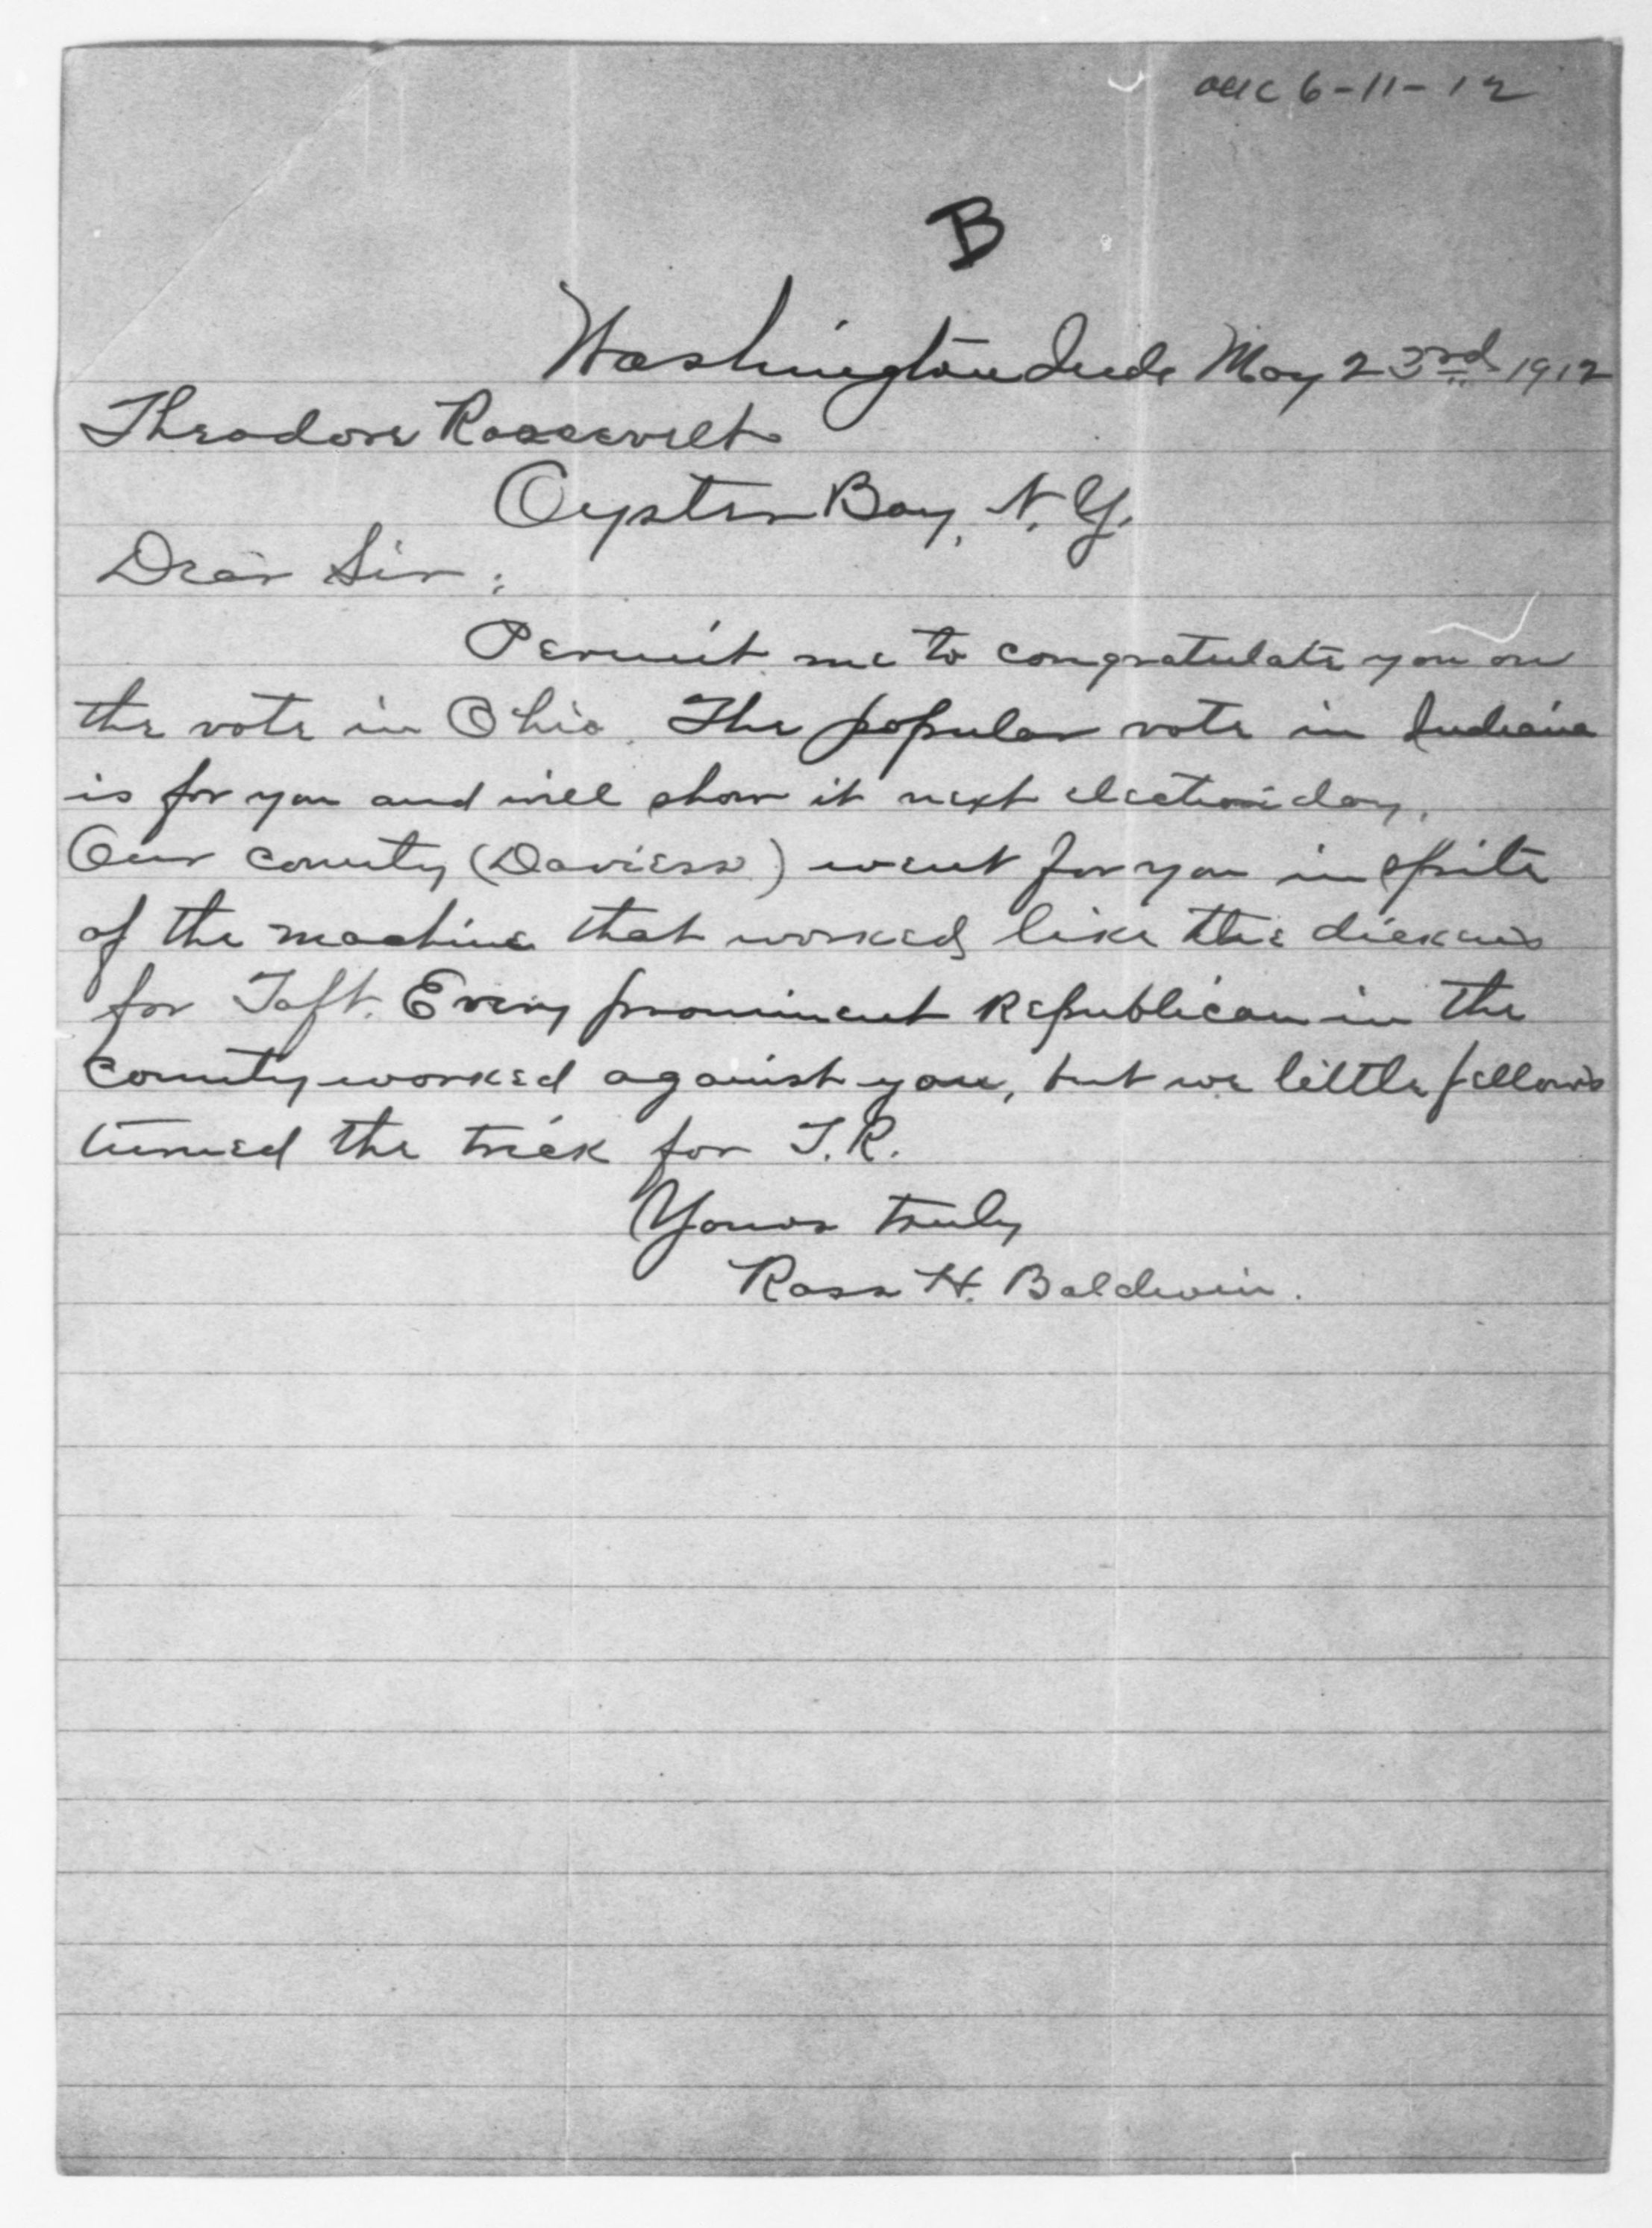 ack 6-11-12
B
Washington Inde May 23rd 1912
Theodore Roosevelt
Oyster Bay, N.Y.
Dear Sir:
Permit me to congratulate you on
the vote in Ohio. The popular vote in Indiana
is for you and will show it next election day.
Our county (Daviess) went for you in spite
of the machine that worked like the dickens
for Taft. Every prominent Republican in the
county worked against you, but we little fellows
turned the trick for T.R.
Yours truly
Ross H. Baldwin.